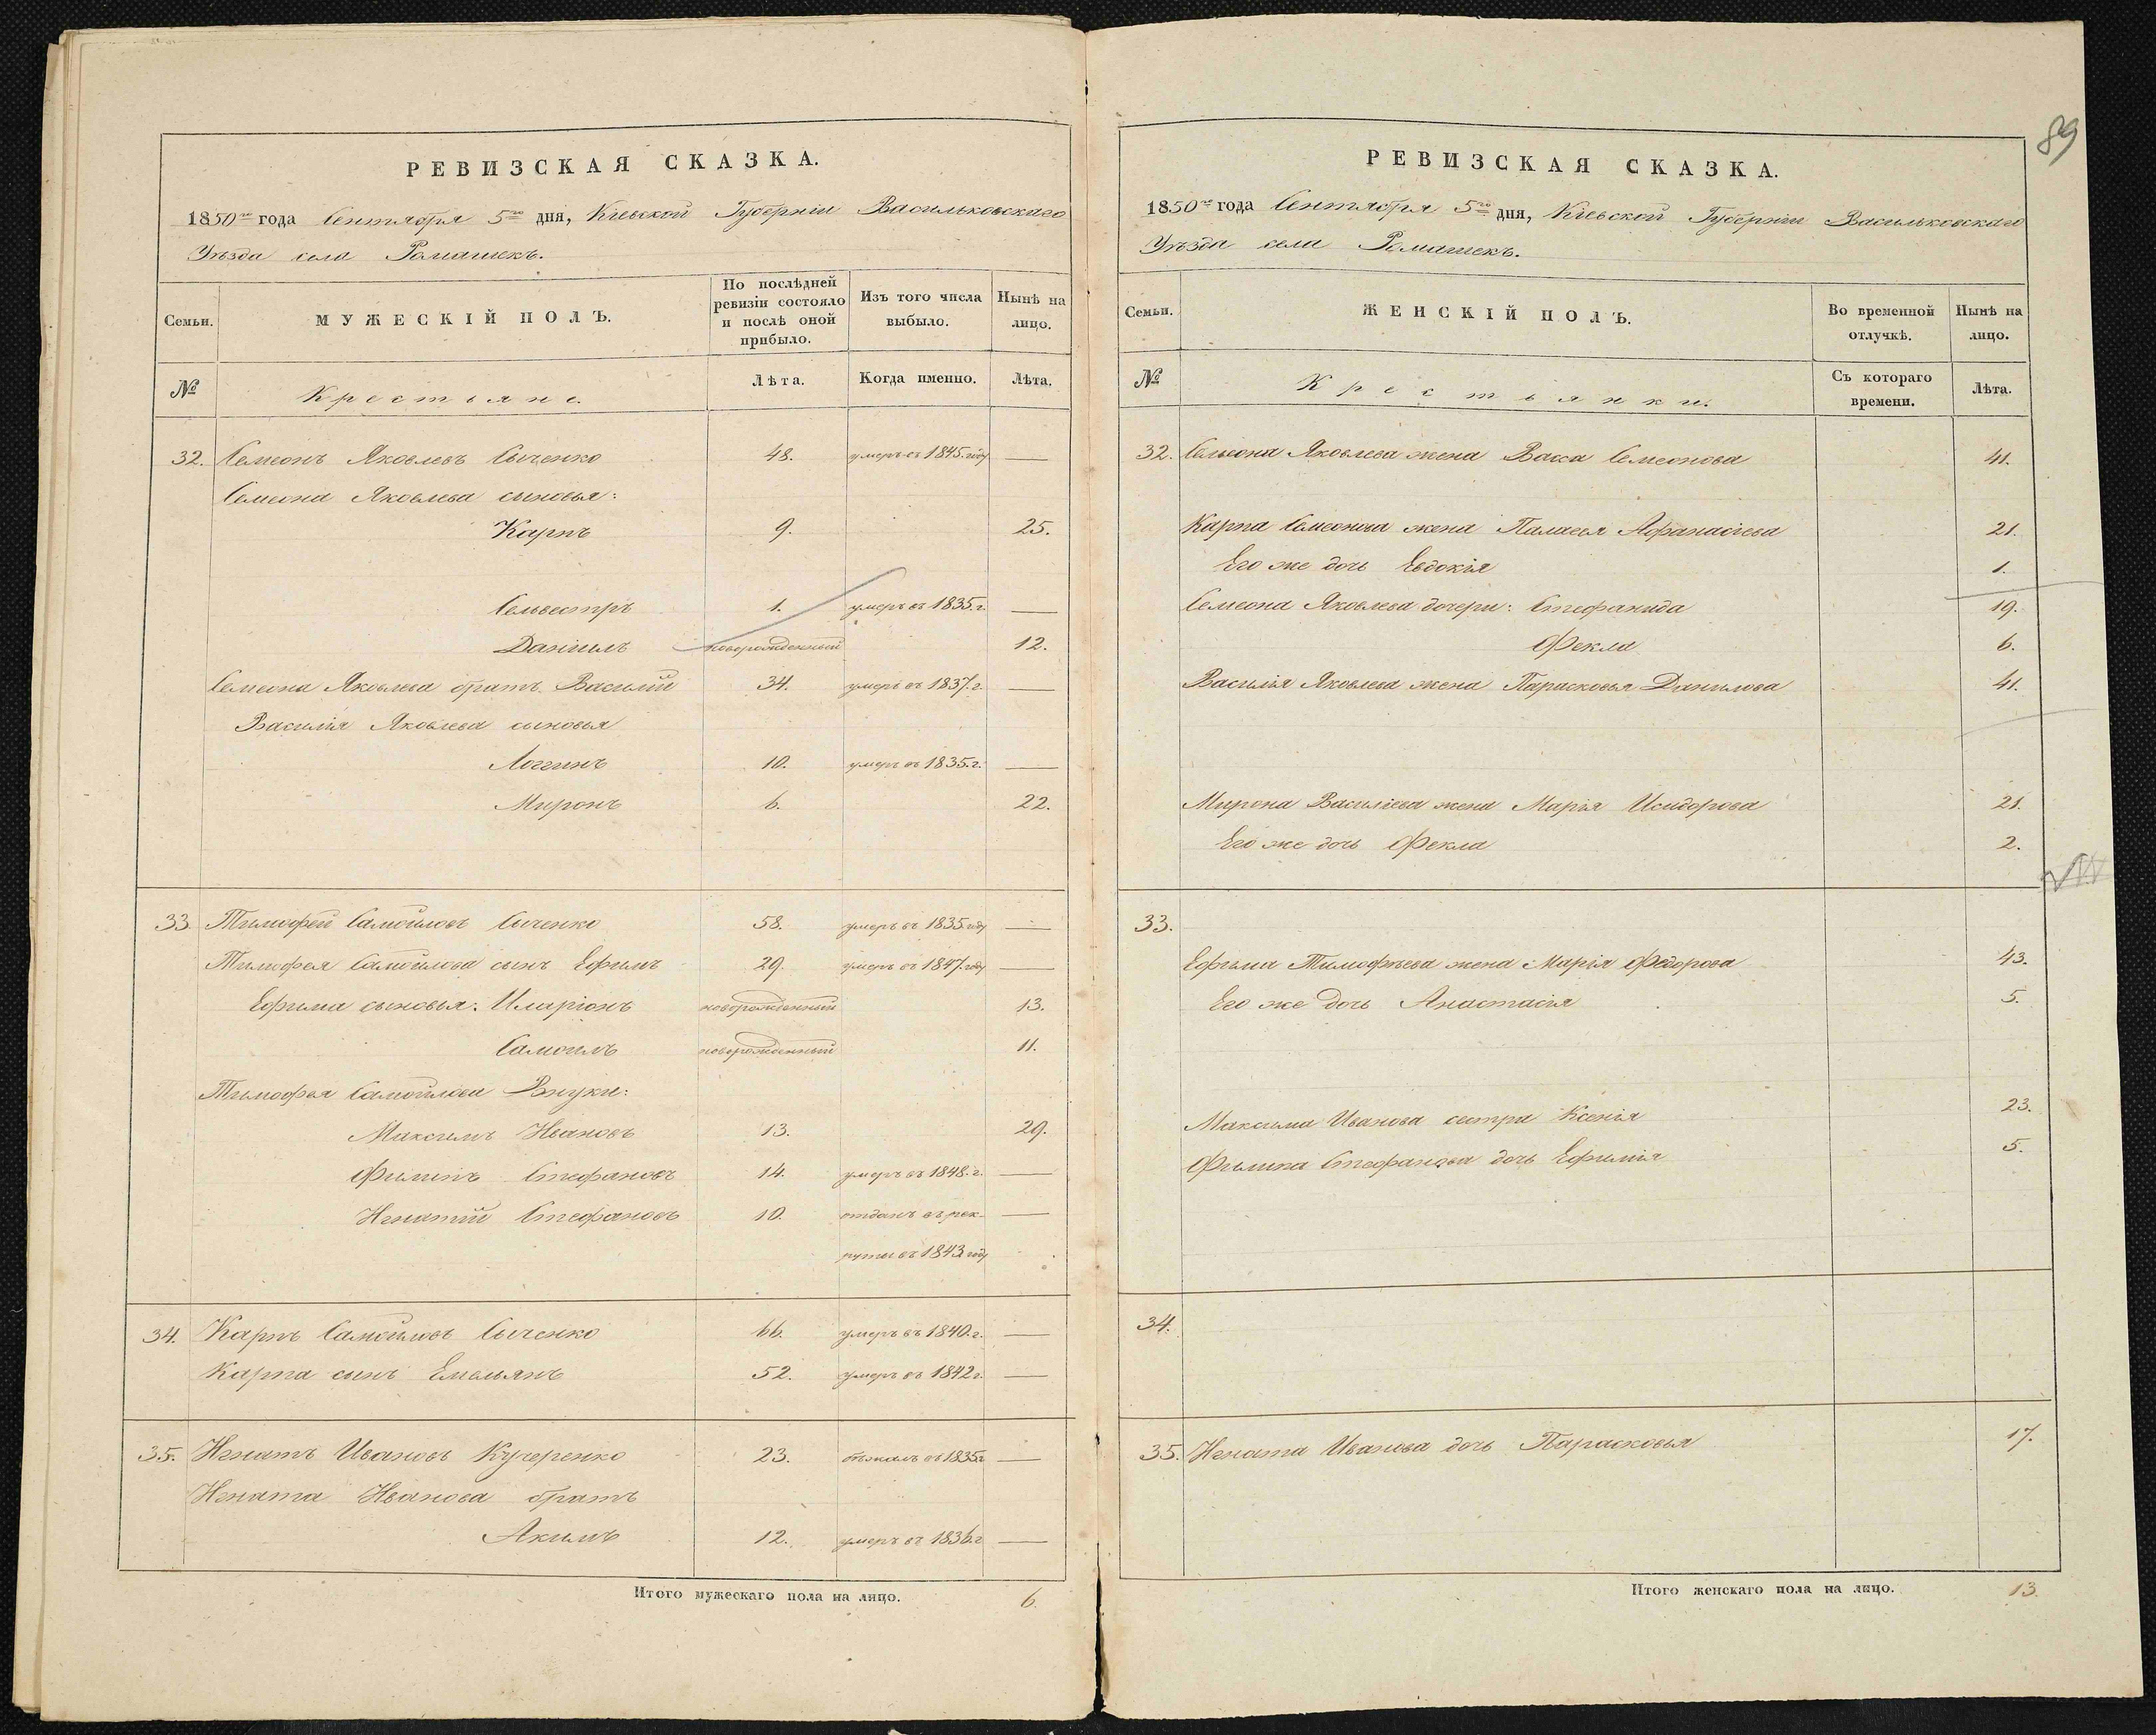 РЕВИЗСКАЯ СКАЗКА.
1850го года Сентября 5го дня, Кіевской Губерніи Васильковскаго
Уѣзда села Ромашекъ.
Семьи. МУЖЕСКІЙ ПОЛЪ. По послѣдней ревизіи состояло и послѣ оной прибыло. Изъ того числа выбыло. Нынѣ на лицо.
№ Крестьяне. Лѣта. Когда именно. Лѣта.
32. Семеонъ Яковлевъ Сыченко 48. умеръ въ 1845. году —
Семеона Яковлева сыновья:
Карпъ 9. 25.
Сельвестръ 1. умеръ въ 1835. г. —
Даніилъ новорожденный 12.
Семеона Яковлева братъ Василій 34. умеръ въ 1837. г. —
Василія Яковлева сыновья
Логгинъ 10. умеръ въ 1835. г. —
Миронъ 6. 22.
33. Тимофей Самойловъ Сыченко 58. умеръ въ 1835 году —
Тимофея Самойлова сынъ Ефимъ 29. умеръ въ 1847. году —
Ефима сыновья: Иларіонъ новорожденный 13.
Самоилъ новорожденный 11.
Тимофея Самойлова Внуки:
Максимъ Ивановъ 13. 29.
Филипъ Стефановъ 14. умеръ въ 1848. г. —
Игнатій Стефановъ 10. отданъ въ рек- —
руты въ 1843 году
34. Карпъ Самойловъ Сыченко 66. умеръ въ 1840. г. —
Карпа сынъ Емельянъ 52. умеръ въ 1842 г. —
35. Игнатъ Ивановъ Кучеренко 23. бѣжалъ въ 1835 г —
Игната Иванова братъ
Акимъ 12. умеръ въ 1836. г —
Итого мужескаго пола на лицо. 6.
89
РЕВИЗСКАЯ СКАЗКА.
1850го года Сентября 5го дня, Кіевской Губерніи Васильковскаго
Уѣзда села Ромашекъ.
Семьи. ЖЕНСКІЙ ПОЛЪ. Во временной отлучкѣ. Нынѣ на лицо.
№ Крестьянки. Съ котораго времени. Лѣта.
32. Семеона Яковлева жена Васса Семеонова 41.
Карпа Семеонова жена Палагея Афанасіева 21.
Его же дочь Евдокія 1.
Семеона Яковлева дочери: Стефанида 19.
Фекла 6.
Василія Яковлева жена Парасковья Данилова 41.
Мирона Василіева жена Марія Исидорова 21.
Его же дочь Фекла 2.
33.
Ефима Тимофѣева жена Марія Федорова 43.
Его же дочь Анастасія 5.
Максима Иванова сестра Ксенія 23.
Филипа Стефанова дочь Ефимія 5.
34.
35. Игната Иванова дочь Парасковья 17.
Итого женскаго пола на лицо. 13.